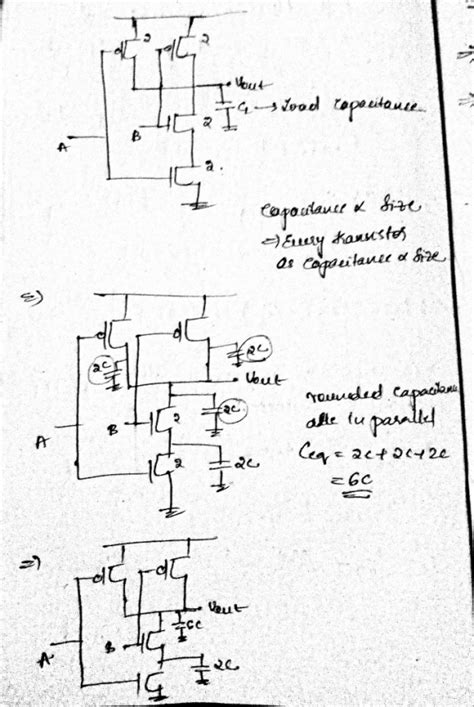 2 2
Vout
CL → Load Capacitance
B 2
A
2
Capacitance ∝ Size
⇒ Every transistor
as capacitance ∝ size
⇒)
2C 2C
Vout
2C
B 2
A
2 2C
rounded capacitance
are in parallel
Ceq = 2C + 2C + 2C
= 6C
⇒)
Vout
6C
B
A 2C